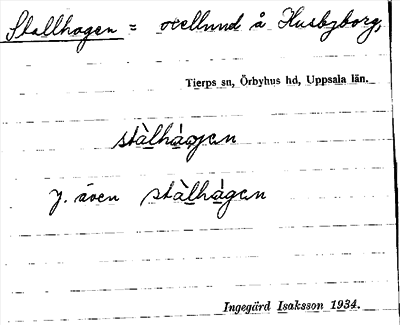 Stallhagen = mellund å Husbyborg,
Tierps sn, Örbyhus hd, Uppsala län.
stàlhágen
J. även stàlhágen
Ingegärd Isaksson 1934.